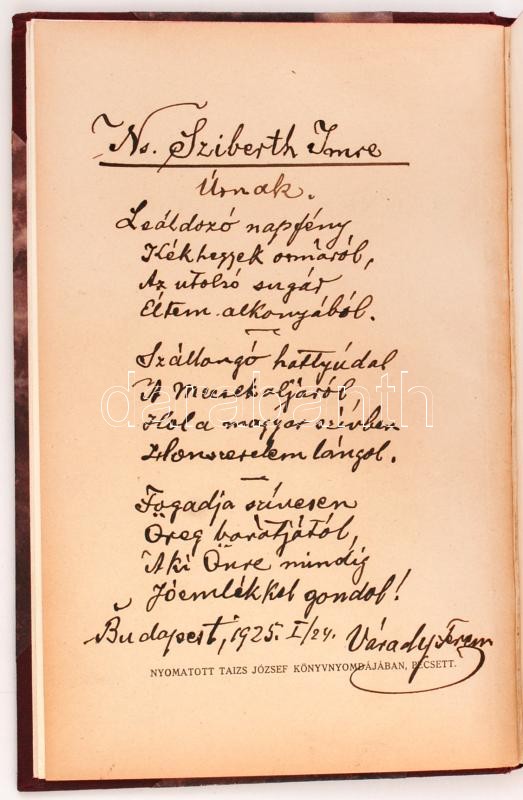 Ns. Sziberth Imre
Úrnak.
Leáldozó napfény
Kékhegyek ormáról,
Az utolsó sugár
Éltem alkonyából.
Szállongó hattyúdal
A Mecsek aljáról
Hol a magyar szívben
Honszerelem lángol.
darabanth
Fogadja szívesen
Öreg barátjától,
Aki Önre mindig
Jóemlékkel gondol!
Budapest, 1925. I/24. Várady Ferenc
NYOMATOTT TAIZS JÓZSEF KÖNYVNYOMDÁJÁBAN, PÉCSETT.